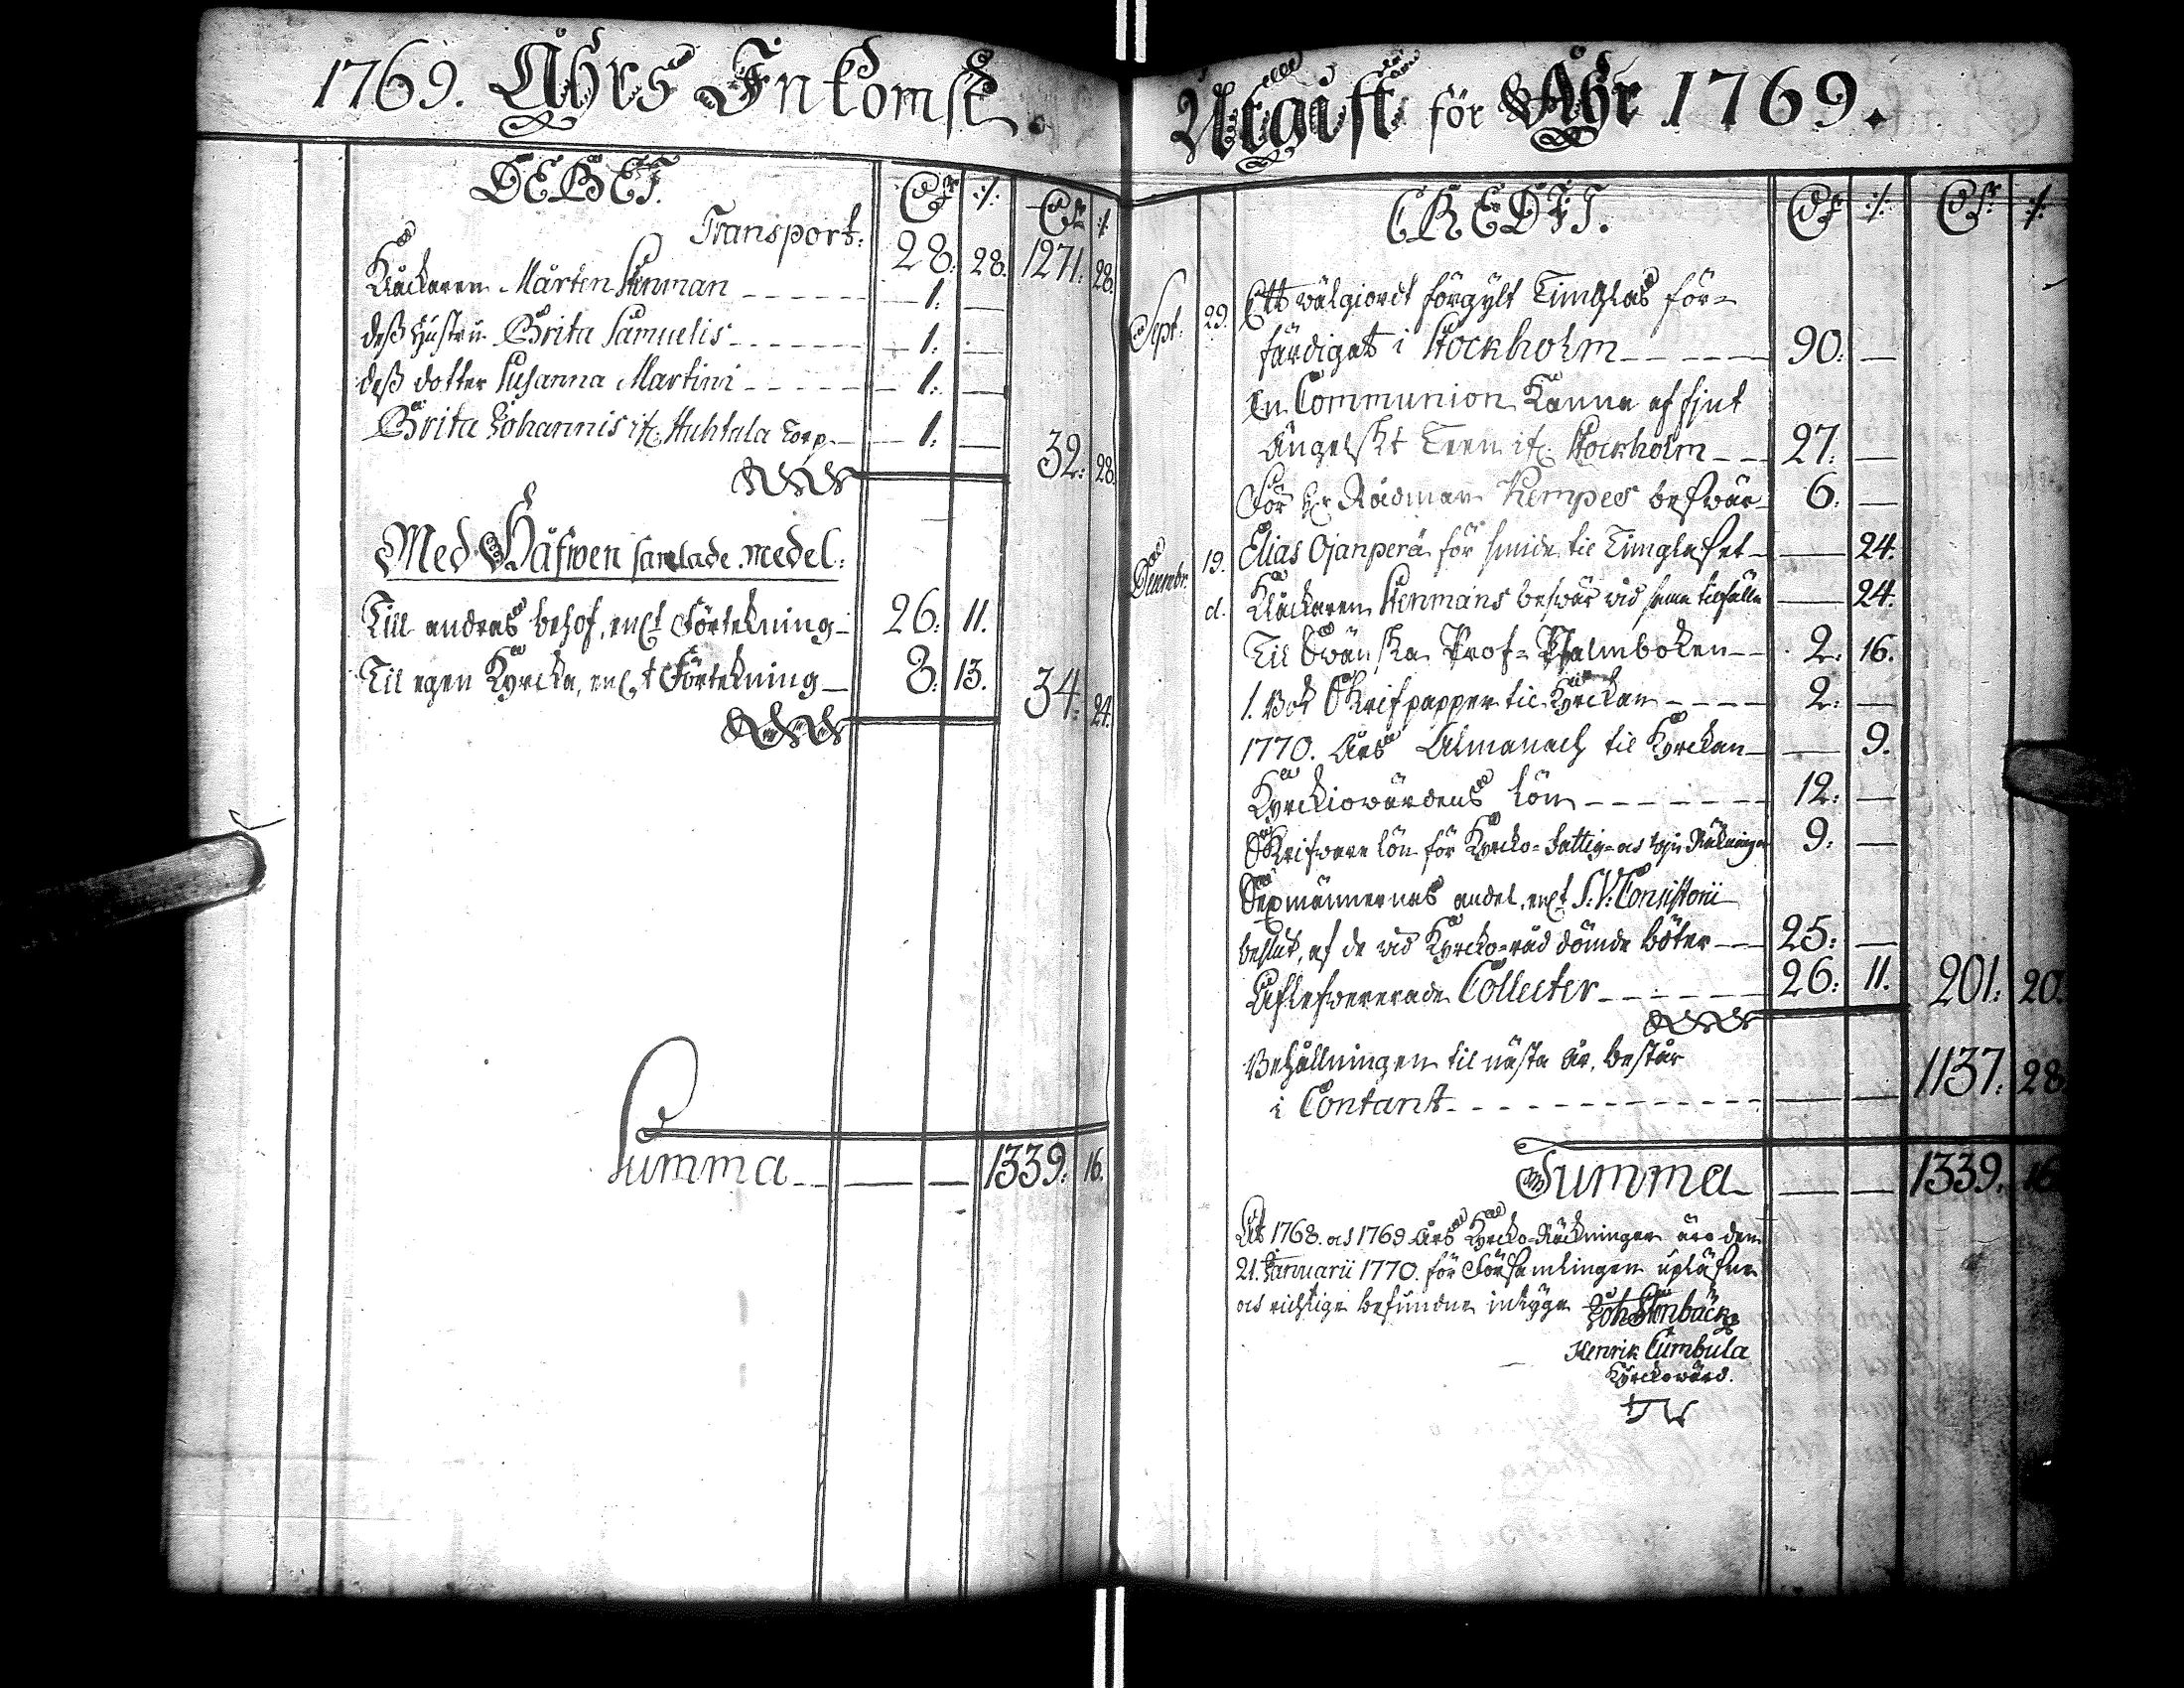 1769. Åhrs Inkomst.
DEBET. Dr ./. Dr ./.
Transport: 28: 28. 1271: 28.
Klåckaren Mårten Stenman 1: —
deß hustru Brita Samuelis 1: —
deß dotter Susanna Martini 1: —
Brita Johannis if. Huhtala torp. 1: — 32: 28.
Med Håfwen samlade medel:
Till andras behof, enl:t Förtekning 26: 11.
Til egen Kyrcka, enl:t Förtekning 8: 13. 34: 24.
Summa — — 1339: 16.
Utgift för Åhr 1769.
CREDIT. Dr ./. Dr ./.
Sept. 29. Ett wälgiordt förgylt Timglas för-
färdigat i Stockholm 90: —
En Communion Kanna af fint
Ängelskt Tenn if. Stockholm 27: —
För Hr Rådman Kempes beswär 6: —
Decembr. 19. Elias Ojanperä för smide til Timglaset — 24.
d. Klåckaren Stenmans beswär wid samma tilfälle — 24.
Til Swänska Prof-Psalmboken 2. 16.
1. Bok Skrifpapper til Kyrckan 2: —
1770. Års Almanach til Kyrckan — 9.
Kyrckiowärdens lön 12: —
Skrifware lön för Kyrcko-Fattig- och Räkningar 9: —
Sexmännernas andel, enl:t S:V: Consistorii
beslut, af de wid Kyrcko-råd dömde böter 25: —
Aflefwererade Collecter 26: 11. 201: 20.
Behållningen til nästa år, består
i Contant — — 1137: 28
Summa — — 1339: 16
At 1768. och 1769 Års Kyrcko-Räckningar äro den
21. Januarii 1770. för Församlingen upläsne
och richtige befundne, intyga Joh. Stenbäck
Henrik Cumbula
Kyrckowärd.